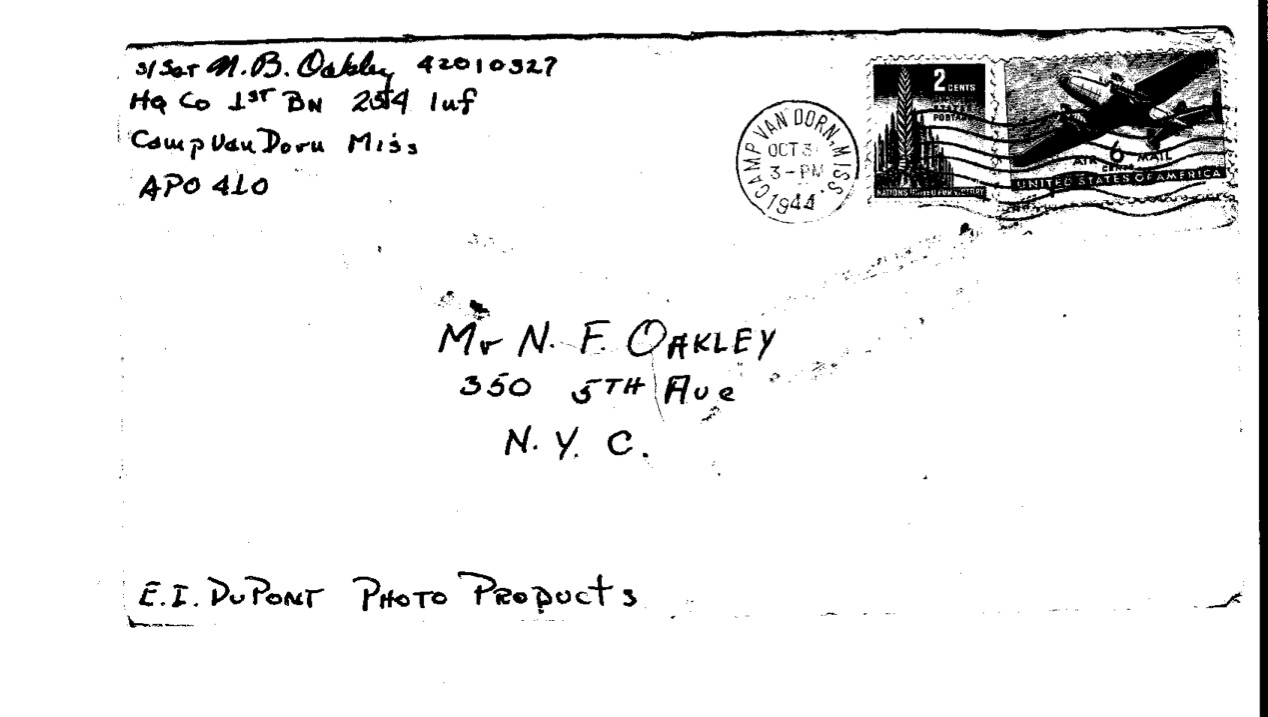 S/Sgt N.B. Oakley 42010327
Hq Co 1ST BN 254 Inf
Camp Van Dorn Miss
APO 410
CAMP VAN DORN, MISS.
OCT 3
3-PM
1944
2 CENTS
UNITED STATES
POSTAGE
NATIONS UNITED FOR VICTORY
AIR 6 MAIL
CENTS
UNITED STATES OF AMERICA
Mr N. F. OAKLEY
350 5TH Ave
N. Y. C.
E.I. DuPONT PHOTO PRODUCTS